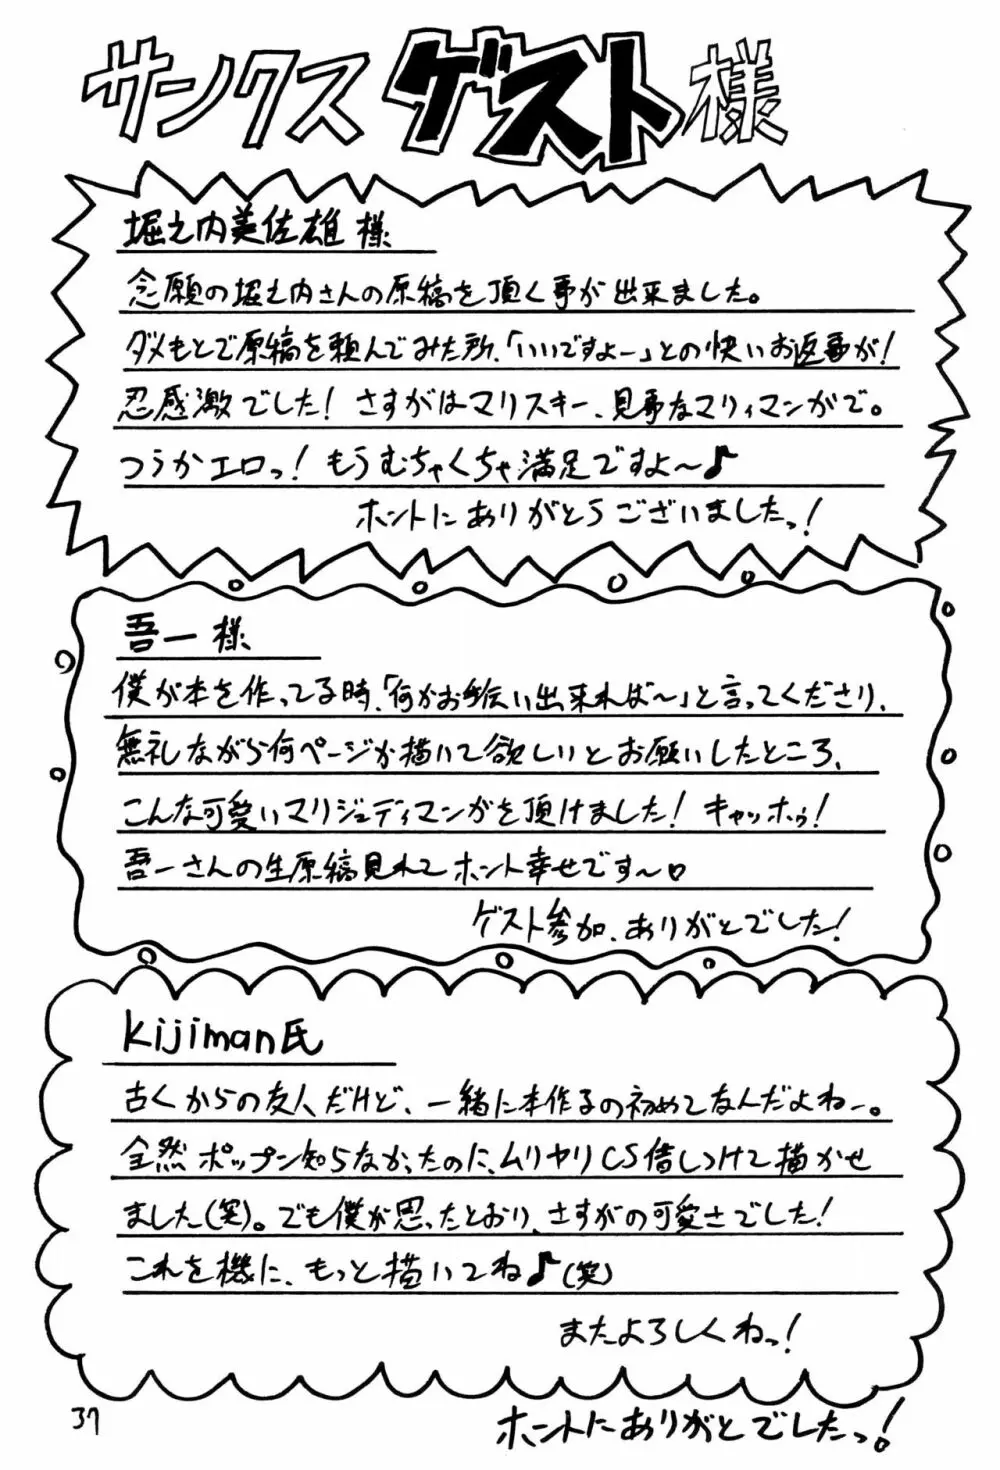 サンクス ゲスト 様
堀之内美佐雄 様
念願の堀之内さんの原稿を頂く事が出来ました。
ダメもとで原稿を頼んでみた所、「いいですよー」との快いお返事が!
忍感激でした! さすがはマリスキー、見事なマリィマンガで。
つうかエロっ! もうむちゃくちゃ満足ですよ〜♪
ホントにありがとうございましたっ!
吾一 様
僕が本を作ってる時、「何かお手伝い出来れば〜」と言ってくださり、
無礼ながら何ページか描いて欲しいとお願いしたところ、
こんな可愛いマリジュディマンガを頂けました! キャッホゥ!
吾一さんの生原稿見れてホント幸せです〜♡
ゲスト参加、ありがとでした!
kijiman氏
古くからの友人だけど、一緒に本作るの初めてなんだよねー。
全然ポップン知らなかったのに、ムリヤリCS借しつけて描かせ
ました(笑)。でも僕が思ったとおり、さすがの可愛さでした!
これを機に、もっと描いてね♪(笑)
またよろしくねっ!
37
ホントにありがとでしたっ!